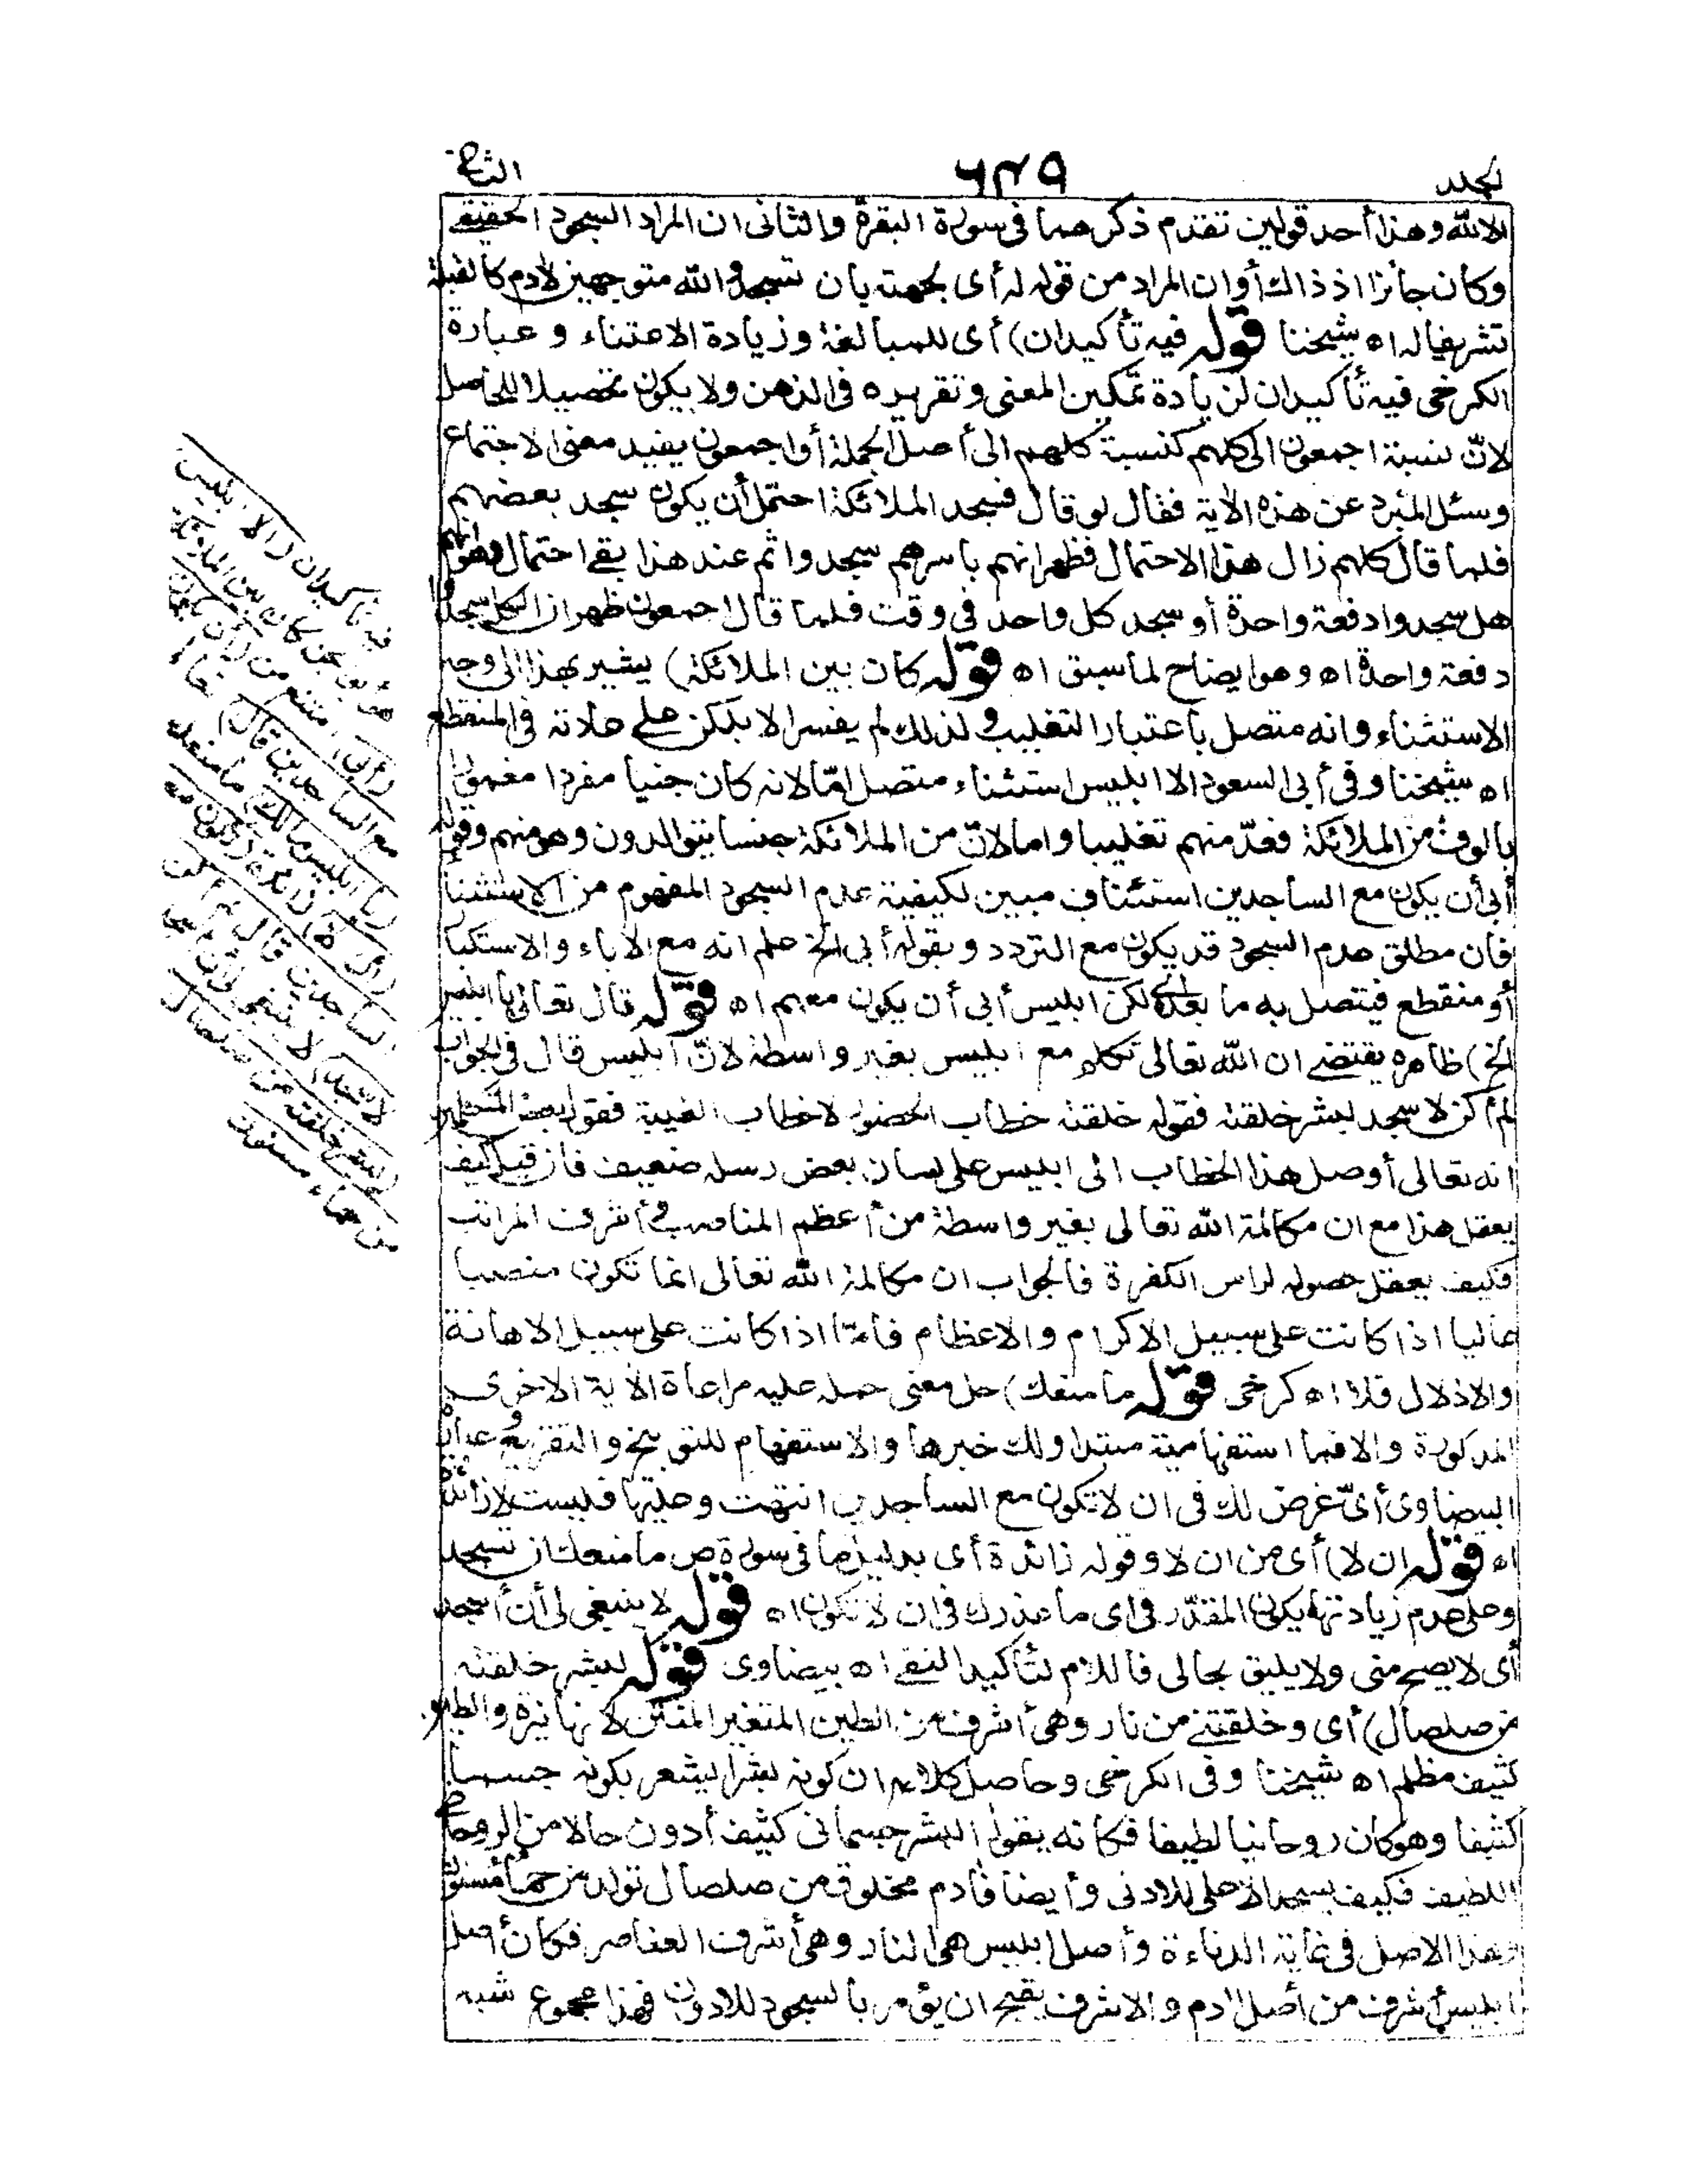 الجلد ٦٤٩ الثانى
الا لله وهذا أحد قولين تقدم ذكرهما فى سورة البقرة والثانى ان المراد السجود الحقيقى
وكان جائزا اذ ذاك أو ان المراد من قوله له أى لجهته بان تسجدوا لله متوجهين لآدم كالقبلة
تشريفا له اه شيخنا قوله فيه تأكيدان) أى للمبالغة وزيادة الاعتناء و عبارة
الكرخى فيه تأكيدان لزيادة تمكين المعنى وتقريره فى الذهن ولا يكون تحصيلا للحاصل
لانّ نسبة اجمعون الى كلهم كنسبة كلهم الى أصل الجملة أو اجمعون يفيد معنى الاجتماع
وسئل المبرد عن هذه الآية فقال لو قال فسجد الملائكة احتمل أن يكون سجد بعضهم
فلما قال كلهم زال هذا الاحتمال فظهر انهم باسرهم سجدوا ثم عند هذا بقى احتمال وهو انهم
هل سجدوا دفعة واحدة أو سجد كل واحد فى وقت فلما قال اجمعون ظهر ان الكل سجدوا
دفعة واحدة اه وهو ايضاح لما سبق اه قوله كان بين الملائكة) يشير بهذا الى وجه
الاستثناء وانه متصل باعتبار التغليب ولذلك لم يفسر الا بلكن على عادته فى المنقطع
اه شيخنا وفى أبى السعود الا ابليس استثناء متصل امّا لانه كان جنيا مفردا مغمورا
بالوف من الملائكة فعدّ منهم تغليبا واما لانّ من الملائكة جنسا يتوالدون وهو منهم وقوله
أبى أن يكون مع الساجدين استئناف مبين لكيفية عدم السجود المفهوم من الاستثنا
فان مطلق عدم السجود قد يكون مع التردد وبقوله أبى الخ علم انه مع الاباء والاستكبا
أو منقطع فيتصل به ما بعده أى لكن ابليس أبى أن يكون معهم اه قوله قال تعالى يا ابليس
الخ) ظاهره يقتضى ان الله تعالى تكلم مع ابليس بغير واسطة لانّ ابليس قال فى الجواب
لم أكن لاسجد لبشر خلقته فقوله خلقته خطاب الحضور لا خطاب الغيبة فقول بعض المتكلمين
انه تعالى أوصل هذا الخطاب الى ابليس على لسان بعض رسله ضعيف فان قيل كيف
يعقل هذا مع ان مكالمة الله تعالى بغير واسطة من أعظم المناصب وأشرف المراتب
فكيف يعقل حصوله لراس الكفرة فالجواب ان مكالمة الله تعالى انما تكون منصبا
عاليا اذا كانت على سبيل الاكرام والاعظام فامّا اذا كانت على سبيل الاهانة
والاذلال فلا اه كرخى قوله ما منعك) حل معنى حمله عليه مراعاة الآية الاخرى
المذكورة والا فما استفهامية مبتدا ولك خبرها والاستفهام للتوبيخ والتقريع وعبارة
البيضاوى أىّ غرض لك فى ان لا تكون مع الساجدين انتهت وعليها فليست لا زائدة
اه قوله ان لا) أى من ان لا وقوله زائدة أى بدليل ما فى سورة ص ما منعك ان تسجد
وعلى عدم زيادتها يكون المقدّر فى اى ما عذرك فى ان لا تكون اه قوله لا ينبغى لى أن أسجد
أى لا يصح منى ولا يليق بحالى فاللام لتأكيد النفى اه بيضاوى قوله لبشر خلقته
من صلصال) أى وخلقتنى من نار وهى أشرف من الطين المتغير المنتن لانها نيرة والطين
كثيف مظلم اه شيخنا وفى الكرخى وحاصل كلامه ان كونه بشرا يشعر بكونه جسما
كثيفا وهو كان روحانيا لطيفا فكانه يقول البشر جسمانى كثيف أدون حالا من الروحانى
اللطيف فكيف يسجد الاعلى للادنى وأيضا فآدم مخلوق من صلصال تولد من حمأ مسنون
وهذا الاصل فى غاية الدناءة وأصل ابليس هى النار وهى أشرف العناصر فكان أصل
ابليس أشرف من أصل آدم والاشرف يقبح ان يؤمر بالسجود للادون فهذا مجموع شبه
فيه تأكيدان (الا ابليس)
هو أبو الجن كان بين الملائكة
(أبى) امتنع من (أن يكون
مع الساجدين قال) تعالى
(يا ابليس مالك) ما منعك
(أن لا) زائدة (تكون مع
الساجدين قال لم أكن
لاسجد) لا ينبغى لى أن أسجد
(لبشر خلقته من صلصال
من حمأ مسنون